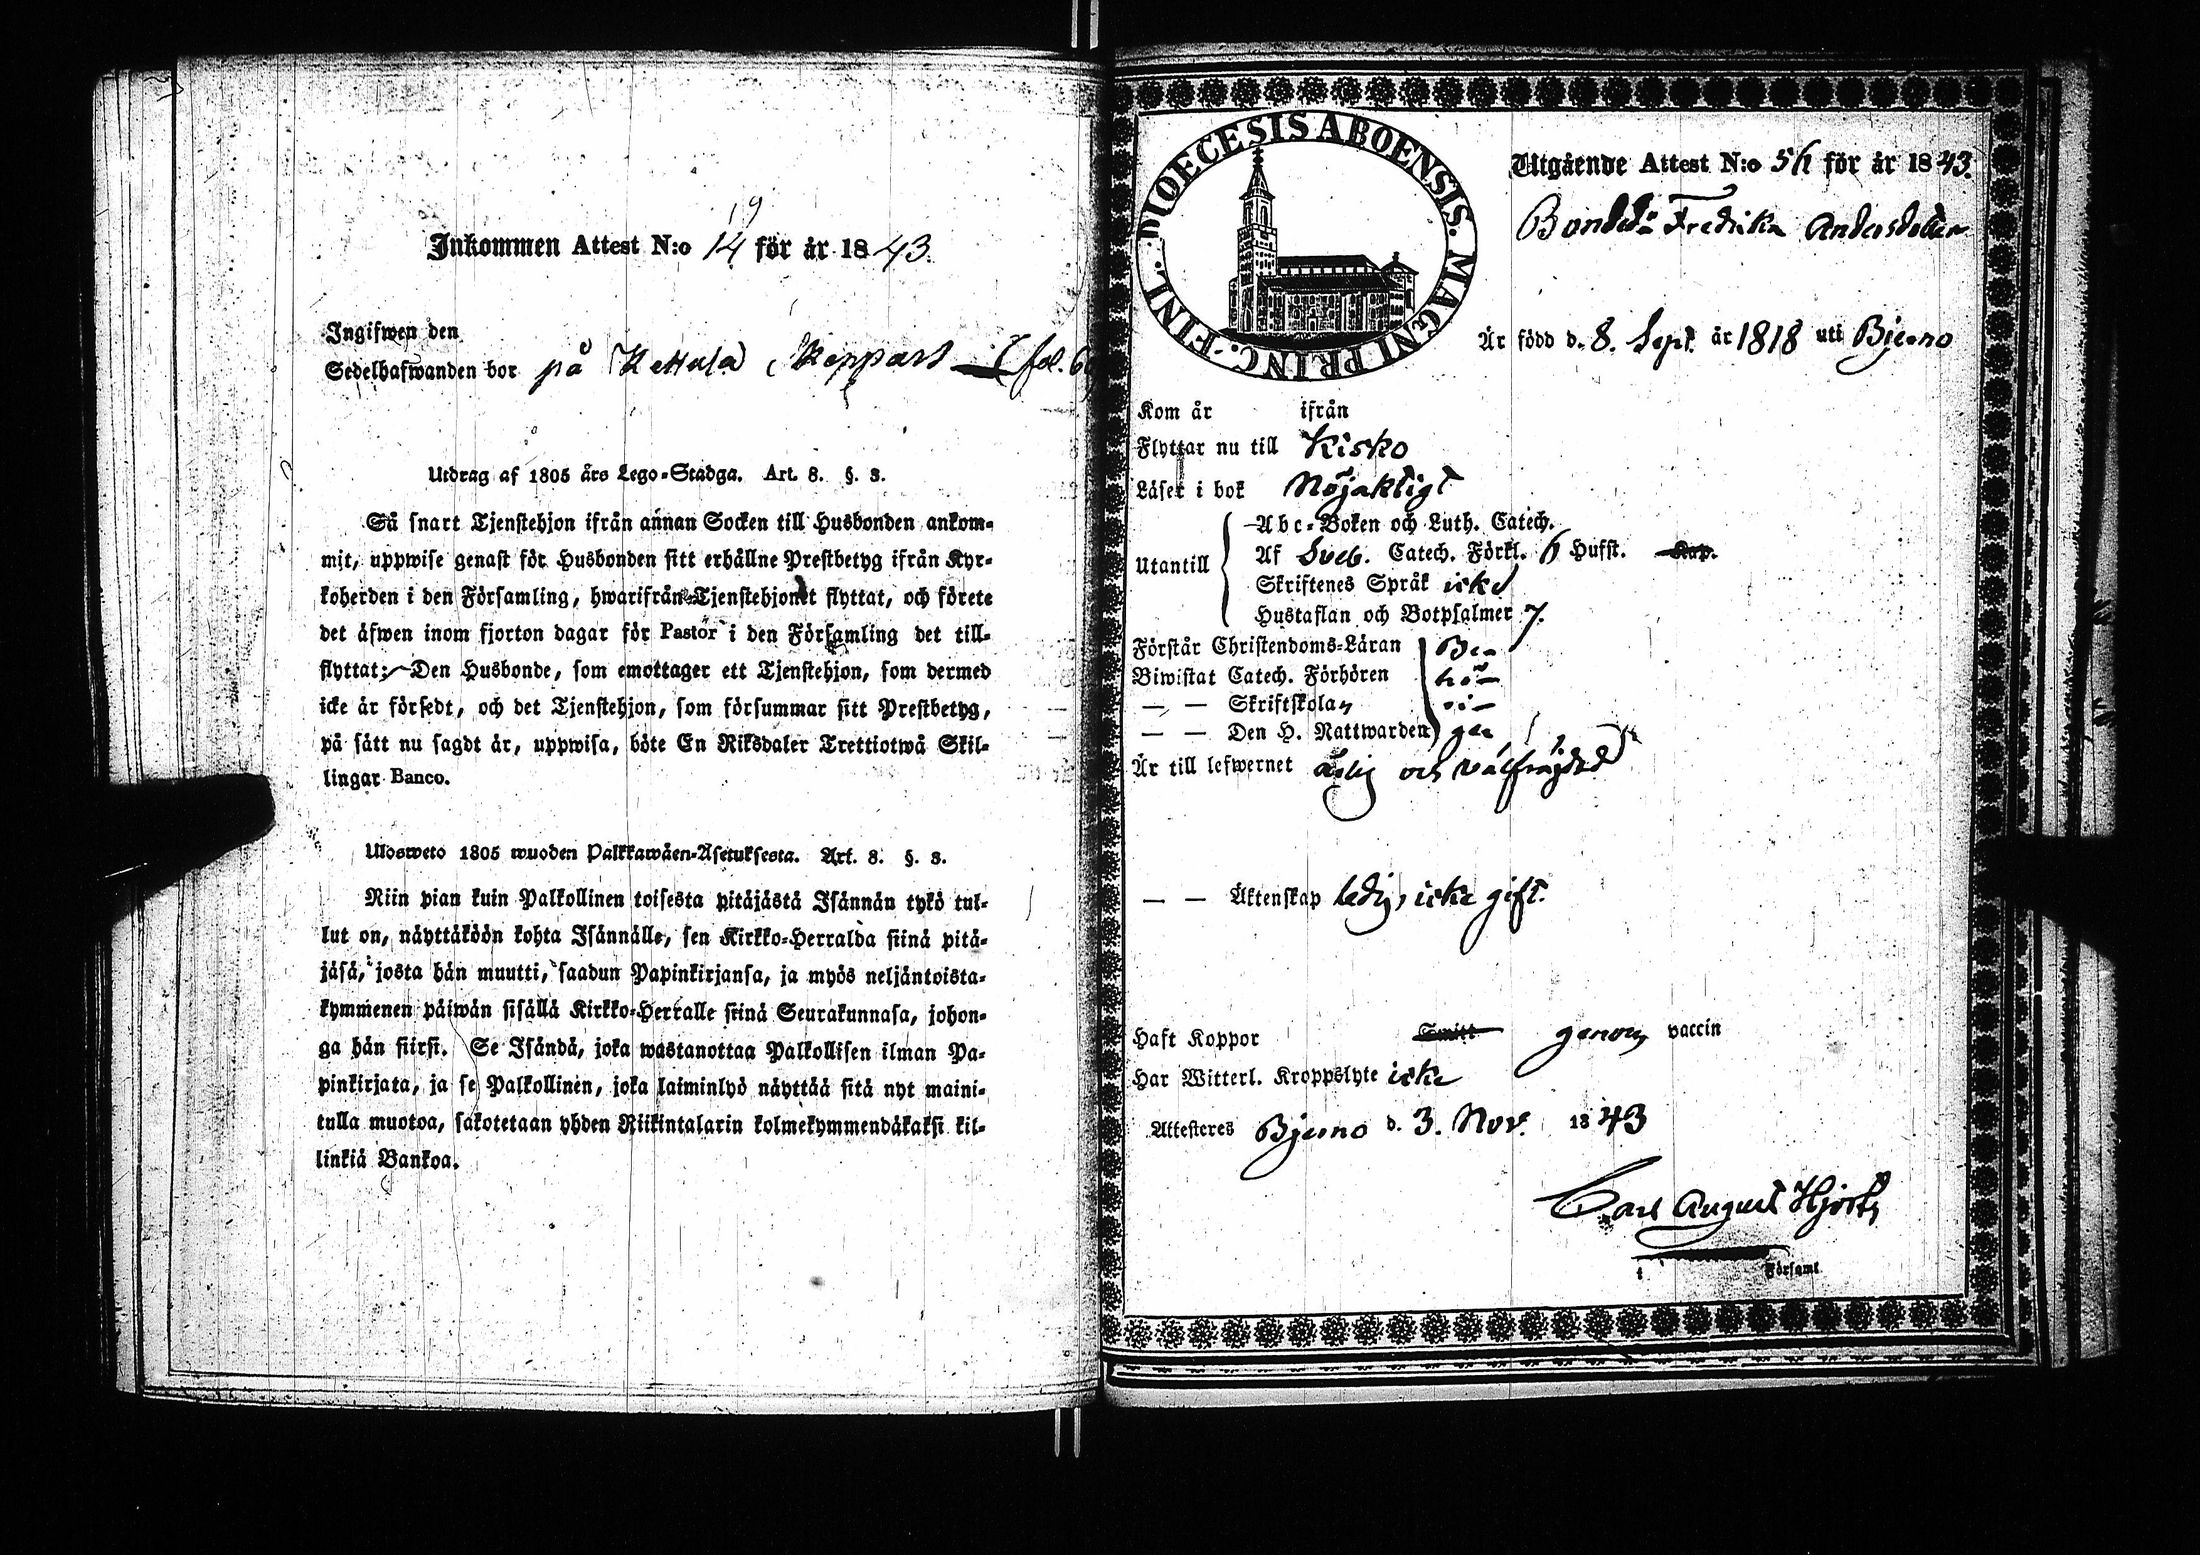 19
Inkommen Attest N:o 14 för år 1843.
Ingifwen den
Sedelhafwanden bor på Kettula Skeppars (fol. 6
Utdrag af 1805 års Lego-Stadga. Art. 8. §. 3.
Så snart Tjenstehjon ifrån annan Socken till Husbonden ankom-
mit, uppwise genast för Husbonden sitt erhållne Prestbetyg ifrån Kyr-
koherden i den Församling, hwarifrån Tjenstehjonet flyttat, och förete
det äfwen inom fjorton dagar för Pastor i den Församling det till-
flyttat; Den Husbonde, som emottager ett Tjenstehjon, som dermed
icke är försedt, och det Tjenstehjon, som försummar sitt Prestbetyg,
på sätt nu sagdt är, uppwisa, böte En Riksdaler Trettiotwå Skil-
lingar Banco.
Ulosweto 1805 wuoden Palkkawäen-Asetuksesta. Art. 8. §. 3.
Niin pian kuin Palkollinen toisesta pitäjästä Isännän tykö tul-
lut on, näyttäköön kohta Isännälle, sen Kirkko-Herralda siinä pitä-
jäsä, josta hän muutti, saadun Papinkirjansa, ja myös neljäntoista-
kymmenen päiwän sisällä Kirkko-Herralle siinä Seurakunnasa, johon-
ga hän siirsi. Se Isändä, joka wastanottaa Palkollisen ilman Pa-
pinkirjata, ja se Palkollinen, joka laiminlyö näyttää sitä nyt maini-
tulla muotoa, sakotetaan yhden Riikintalarin kolmekymmendäkaksi kil-
linkiä Bankoa.
DIOECESIS ABOENSIS. MAGNI PRINC. FINL.
Utgående Attest N:o 56 för år 1843.
Bondedr Fredrika Andersdotter
Är född d. 8. Sept. år 1818 uti Bjerno
Kom år ifrån
Flyttar nu till Kisko
Läser i bok Nöjaktigt
Utantill
Abc-Boken och Luth. Catech.
Af Sveb. Catech. Förkl. 6 Hufst. Kap.
Skriftenes Språk icke
Hustaflan och Botpsalmer 7.
Förstår Christendoms-Läran Be-
Biwistat Catech. Förhören hö-
— — Skriftskolan ri-
— — Den H. Nattwarden gen
Är till lefwernet ärlig och välfrägdad
— — Äktenskap ledig, icke gift.
Haft Koppor Smitt genom vaccin
Har Witterl. Kroppslyte icke
Attesteres Bjerno d. 3. Nov. 1843
Carl August Hjorth
i Församl.